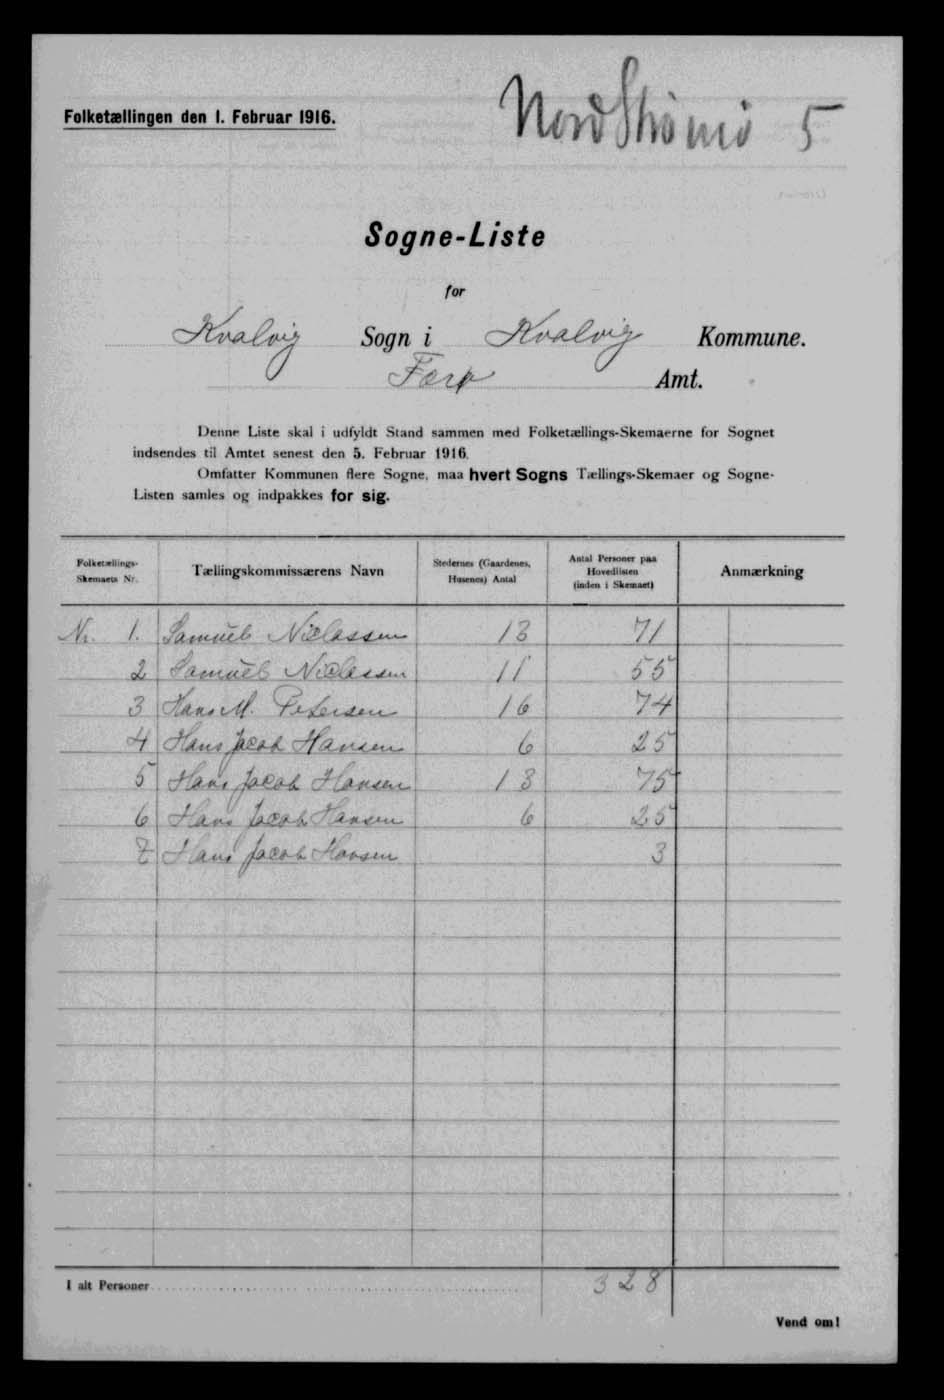 Folketællingen den 1. Februar 1916.
NordStrømø 5
Sogne-Liste
for
Kvalvig Sogn i Kvalvig Kommune.
Færø Amt.
Denne Liste skal i udfyldt Stand sammen med Folketællings-Skemaerne for Sognet
indsendes til Amtet senest den 5. Februar 1916.
Omfatter Kommunen flere Sogne, maa hvert Sogns Tællings-Skemaer og Sogne-
Listen samles og indpakkes for sig.
Folketællings-Skemaets Nr. Tællingskommissærens Navn Stedernes (Gaardenes, Husenes) Antal Antal Personer paa Hovedlisten (inden i Skemaet) Anmærkning
Nr. 1. Samuel Niclassen 13 71
2 Samuel Niclassen 11 55
3 Hans M. Petersen 16 74
4 Hans Jacob Hansen 6 25
5 Hans Jacob Hansen 13 75
6 Hans Jacob Hansen 6 25
7 Hans Jacob Hansen 3
I alt Personer 328
Vend om!